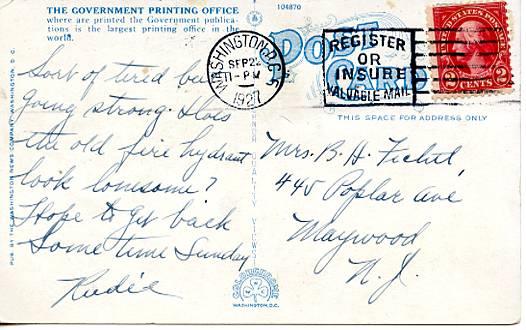 THE GOVERNMENT PRINTING OFFICE
where are printed the Government publica-
tions is the largest printing office in the
world.
Sort of tired but
going strong. Does
the old fire hydrant
look lonesome?
Hope to get back
Some time Sunday
Rudie
PUB. BY THE WASHINGTON NEWS COMPANY, WASHINGTON, D. C.
104870
POST CARD
WASHINGTON, D.C. 5
SEP 22
11-PM
1927
REGISTER
OR
INSURE
VALUABLE MAIL
UNITED STATES POSTAGE
2 CENTS 2
THIS SPACE FOR ADDRESS ONLY
Mrs. B. H. Fichet,
445 Poplar ave
Maywood
N. J.
QUALITY VIEWS
WASHINGTON, D.C.